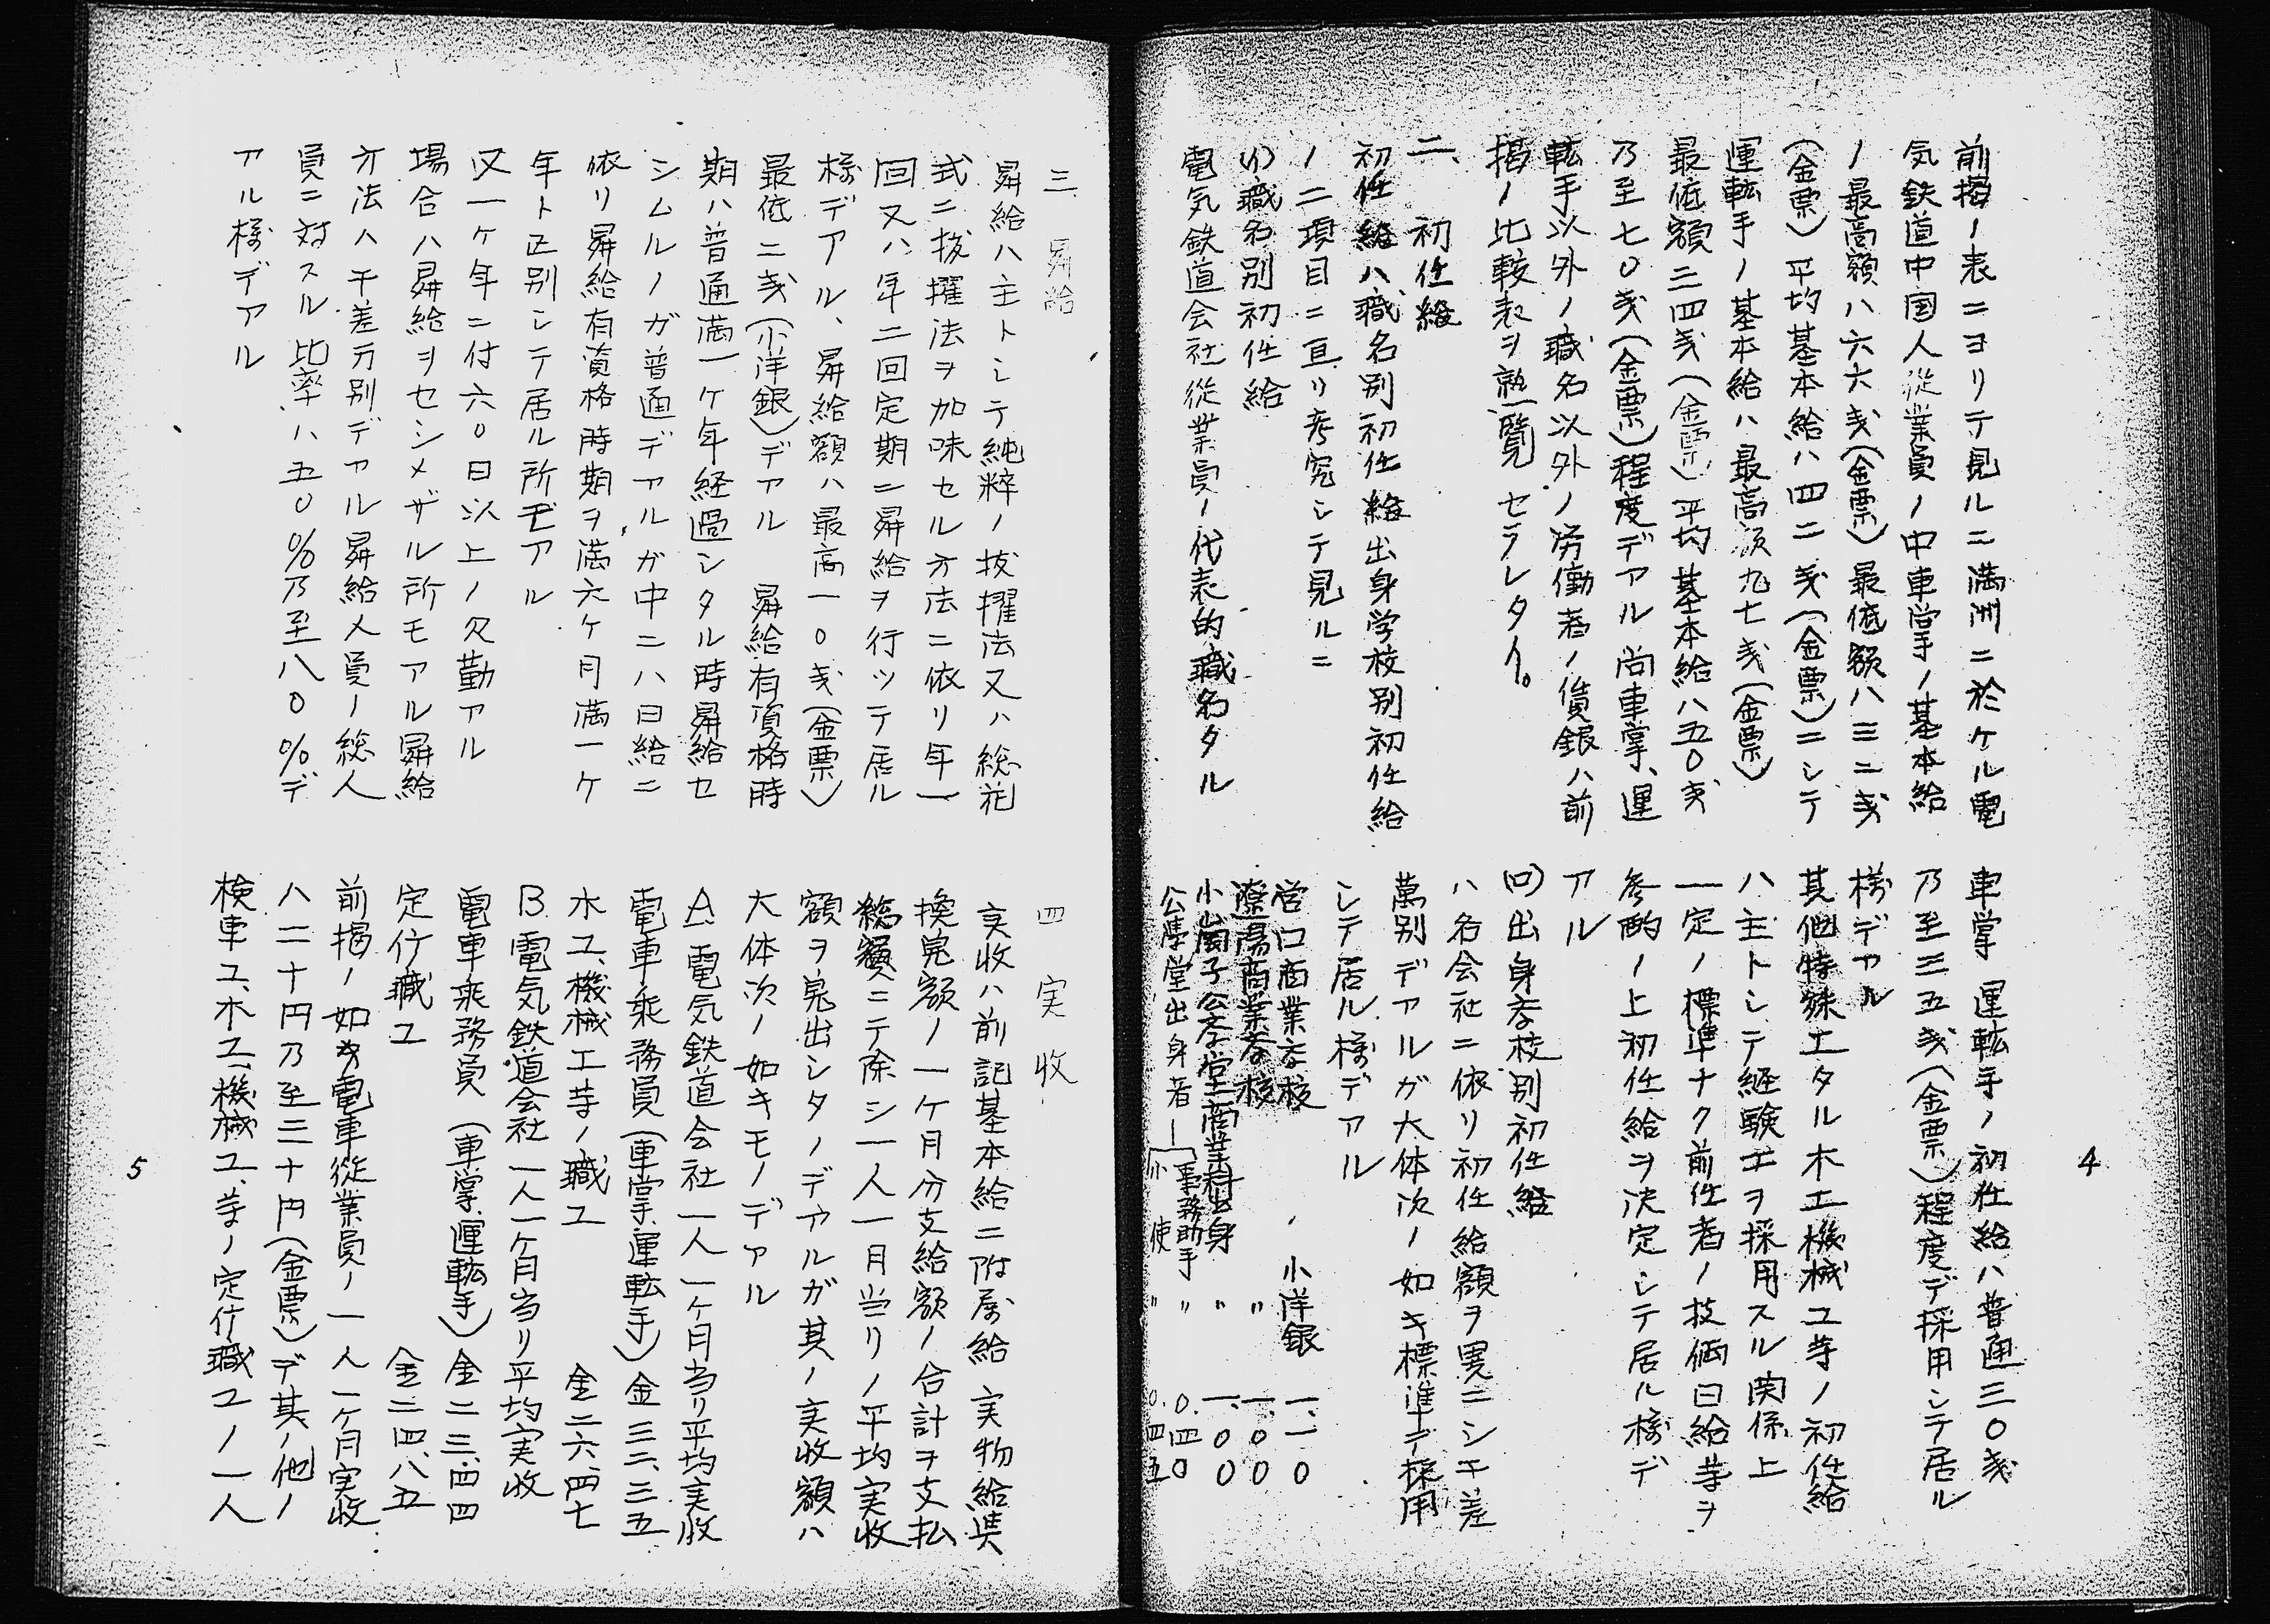 4
前掲ノ表ニヨリテ見ルニ満洲ニ於ケル電
気鉄道中国人従業員ノ中車掌ノ基本給
ノ最高額ハ六六戔(金票)最低額ハ三二戔
(金票)平均基本給ハ四二戔(金票)ニシテ
運転手ノ基本給ハ最高額九七戔(金票)
最低額三四戔(金票)平均基本給ハ五〇戔
乃至七〇戔(金票)程度デアル尚車掌、運
転手以外ノ職名以外ノ労働者ノ賃銀ハ前
掲ノ比較表ヲ熟覧セラレタイ。
二、初任給
初任給ハ職名別初任給出身学校別初任給
ノ二項目ニ亘リ考究シテ見ルニ
(イ)職名別初任給
電気鉄道会社従業員ノ代表的職名タル
車掌 運転手ノ初任給ハ普通三〇戔
乃至三五戔(金票)程度デ採用シテ居ル
様デアル
其他特殊工タル木工機械工等ノ初任給
ハ主トシテ経験工ヲ採用スル関係上
一定ノ標準ナク前任者ノ技倆日給等ヲ
参酌ノ上初任給ヲ決定シテ居ル様デ
アル
(ロ)出身学校別初任給
ハ名会社ニ依リ初任給額ヲ異ニシ千差
萬別デアルガ大体次ノ如キ標準デ採用
シテ居ル様デアル
営口商業学校 小洋銀 一、一〇
遼陽商業学校 〃 一、〇〇
小崗子公学堂商業科出身 〃 一、〇〇
公学堂出身者 事務助手 〃 〇.四〇
小使 〃 〇.四五
三 昇給
昇給ハ主トシテ純粋ノ抜擢法又ハ総花
式ニ抜擢法ヲ加味セル方法ニ依リ年一
回又ハ年二回定期ニ昇給ヲ行ツテ居ル
様デアル、昇給額ハ最高一〇戔(金票)
最低二戔(小洋銀)デアル 昇給有資格時
期ハ普通満一ケ年経過シタル時昇給セ
シムルノガ普通デアルガ中ニハ日給ニ
依リ昇給有資格時期ヲ満六ケ月満一ケ
年ト区別シテ居ル所モアル
又一ケ年ニ付六〇日以上ノ欠勤アル
場合ハ昇給ヲセシメザル所モアル昇給
方法ハ千差万別デアル昇給人員ノ総人
員ニ対スル比率ハ五〇%乃至八〇%デ
アル様デアル
四 実収
実收ハ前記基本給ニ附属給 実物給其
換見額ノ一ケ月分支給額ノ合計ヲ支払
総額ニテ除シ一人一月当リノ平均実收
額ヲ見出シタノデアルガ其ノ実收額ハ
大体次ノ如キモノデアル
A.電気鉄道会社一人一ヶ月当リ平均実收
電車乗務員(車掌、運転手)金三二、三五
木工、機械工等ノ職工 金二六、四七
B.電気鉄道会社一人一ヶ月当リ平均実收
電車乗務員(車掌、運転手)金二三、四四
定行職工 金二四、八五
前掲ノ如キ電車従業員ノ一人一ヶ月実收
ハ二十円乃至三十円(金票)デ其ノ他ノ
検車工、木工、機械工、等ノ定行職工ノ一人
5